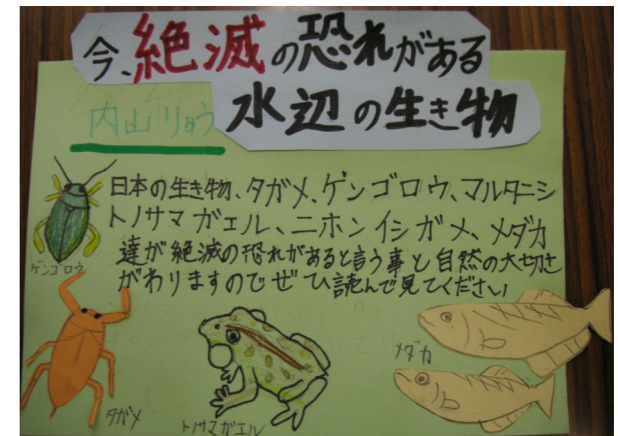 今、絶滅の恐れがある
水辺の生き物
内山りゅう
日本の生き物、タガメ、ゲンゴロウ、マルタニシ
トノサマガエル、ニホンイシガメ、メダカ
達が絶滅の恐れがあると言う事と自然の大切さ
がわりますのでぜひ読んで見てください
ゲンゴロウ
タガメ
トノサマガエル
メダカ